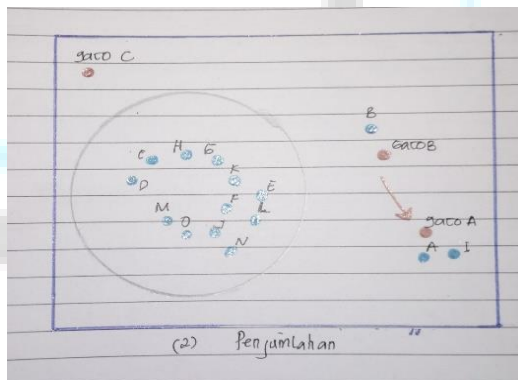 gaco C
B
GacoB
C H G
K
D
E
F
L
M
O J
N
gaco A
A I
(2) Penjumlahan